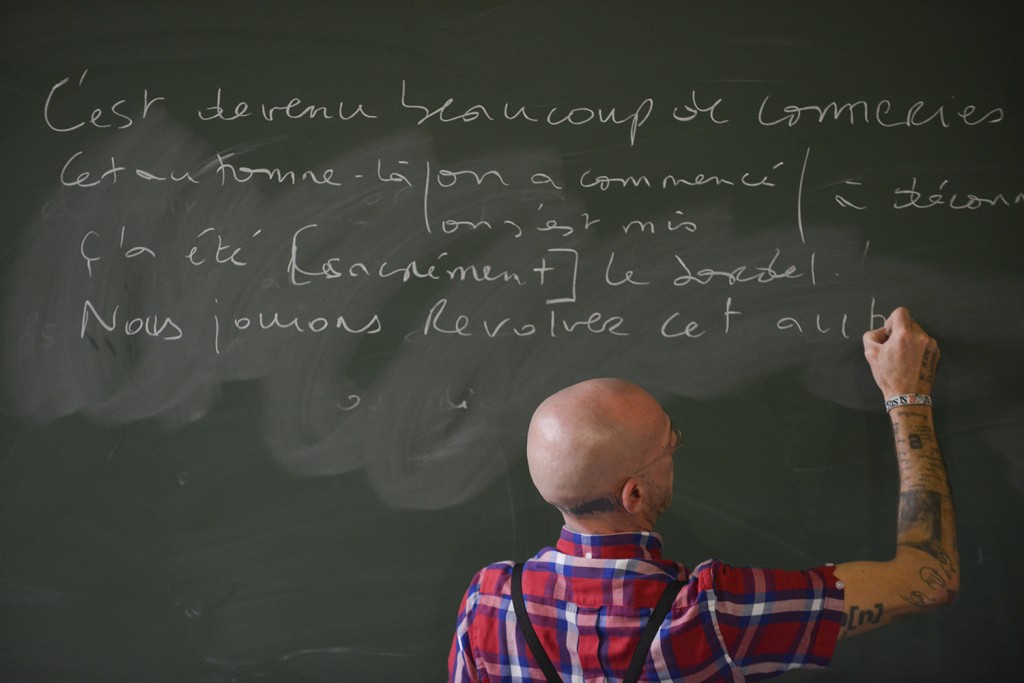 C'est devenu beaucoup de conneries
Cet automne-là on a commencé à déconn
on s'est mis
Ç'a été [sacrément] le bordel.
Nous jouions Revolver cet
a
[n]